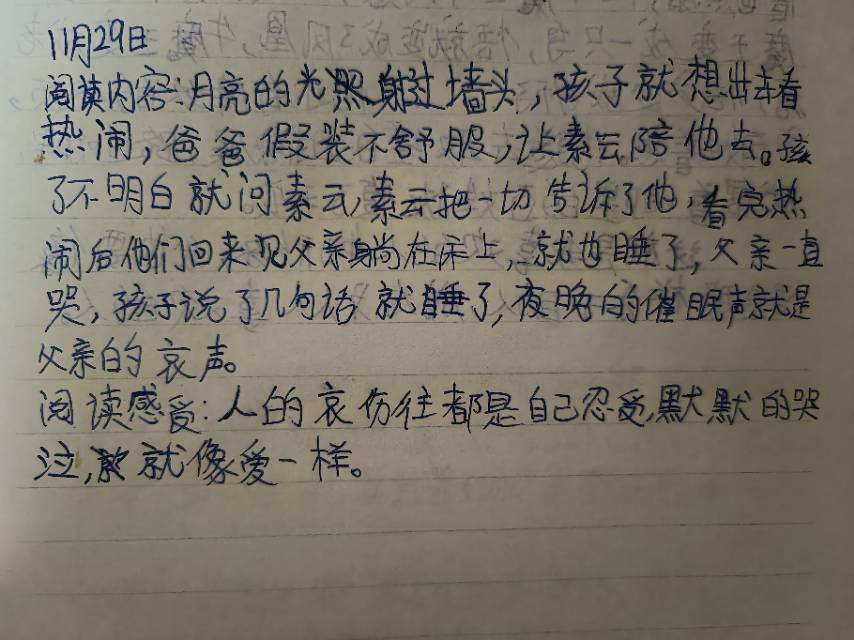 11月29日
阅读内容:月亮的光照射过墙头,孩子就想出去看
热闹,爸爸假装不舒服,让素云陪他去。孩
子不明白就问素云,素云把一切告诉了他,看完热
闹后他们回来见父亲躺在床上,就也睡了,父亲一直
哭,孩子说了几句话就睡了,夜晚的催眠声就是
父亲的哀声。
阅读感受:人的哀伤往都是自己忍受,默默的哭
泣,就像爱一样。